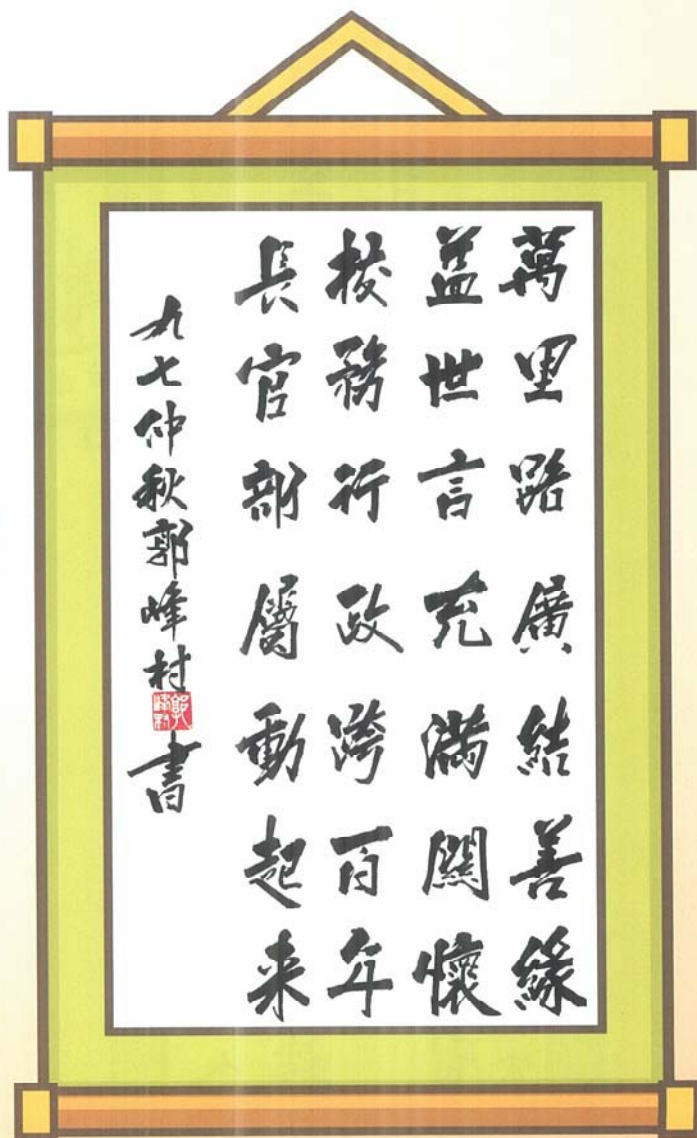 萬里路廣結善緣
益世言充滿關懷
校務行政跨百年
長官部屬動起来
九七仲秋郭峰村書
郭峰村